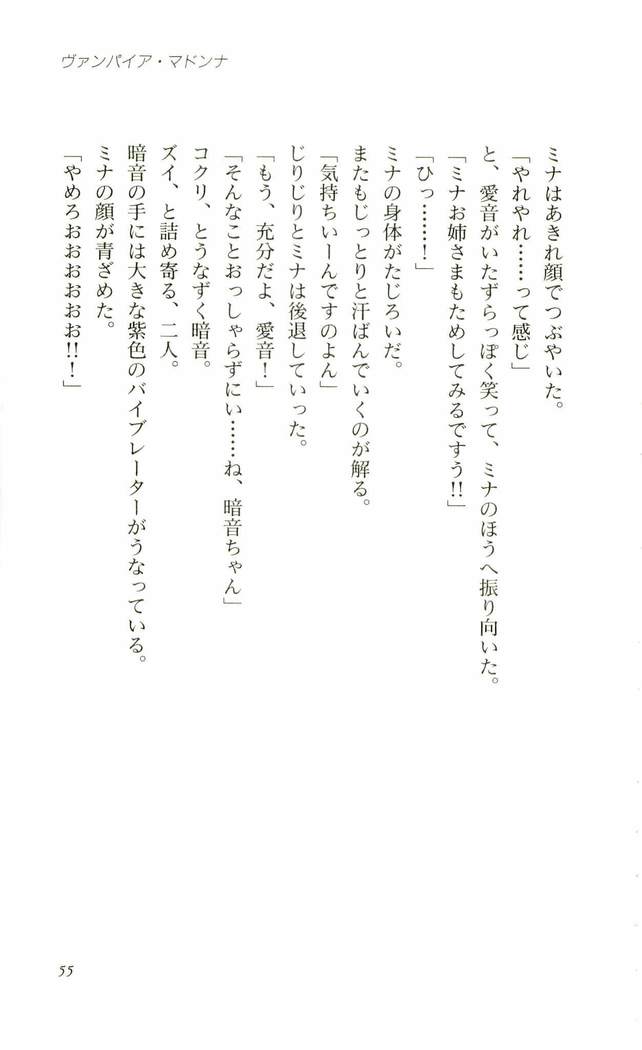 ヴァンパイア・マドンナ
ミナはあきれ顔でつぶやいた。
「やれやれ……って感じ」
と、愛音がいたずらっぽく笑って、ミナのほうへ振り向いた。
「ミナお姉さまもためしてみるですう!!」
「ひっ……！」
ミナの身体がたじろいだ。
またもじっとりと汗ばんでいくのが解る。
「気持ちいーんですのよん」
じりじりとミナは後退していった。
「もう、充分だよ、愛音！」
「そんなことおっしゃらずにい……ね、暗音ちゃん」
コクリ、とうなずく暗音。
ズイ、と詰め寄る、二人。
暗音の手には大きな紫色のバイブレーターがうなっている。
ミナの顔が青ざめた。
「やめろおおおおおお!!！」
55